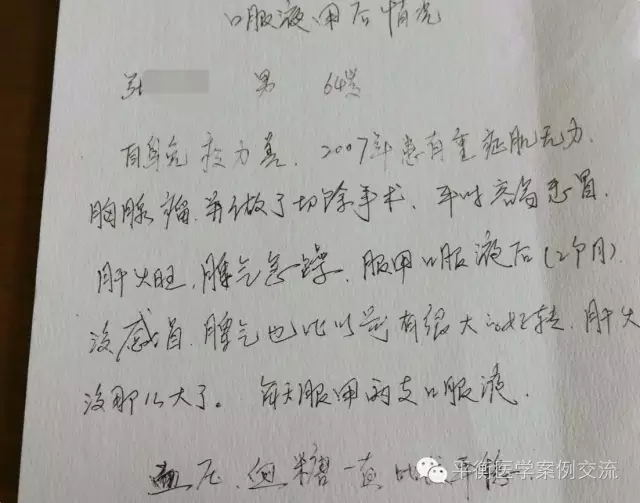 口服液用后情况
男 64岁
自身免疫力差，2007年患有重症肌无力、
胸腺瘤，并做了切除手术，平时容易患冒，
肝火旺，脾气急躁，服用口服液后(2个月)
没感冒，脾气也比以前有很大的好转，肝火
没那么大了。每天服用两支口服液。
血压、血糖一直比
平衡医学案例交流